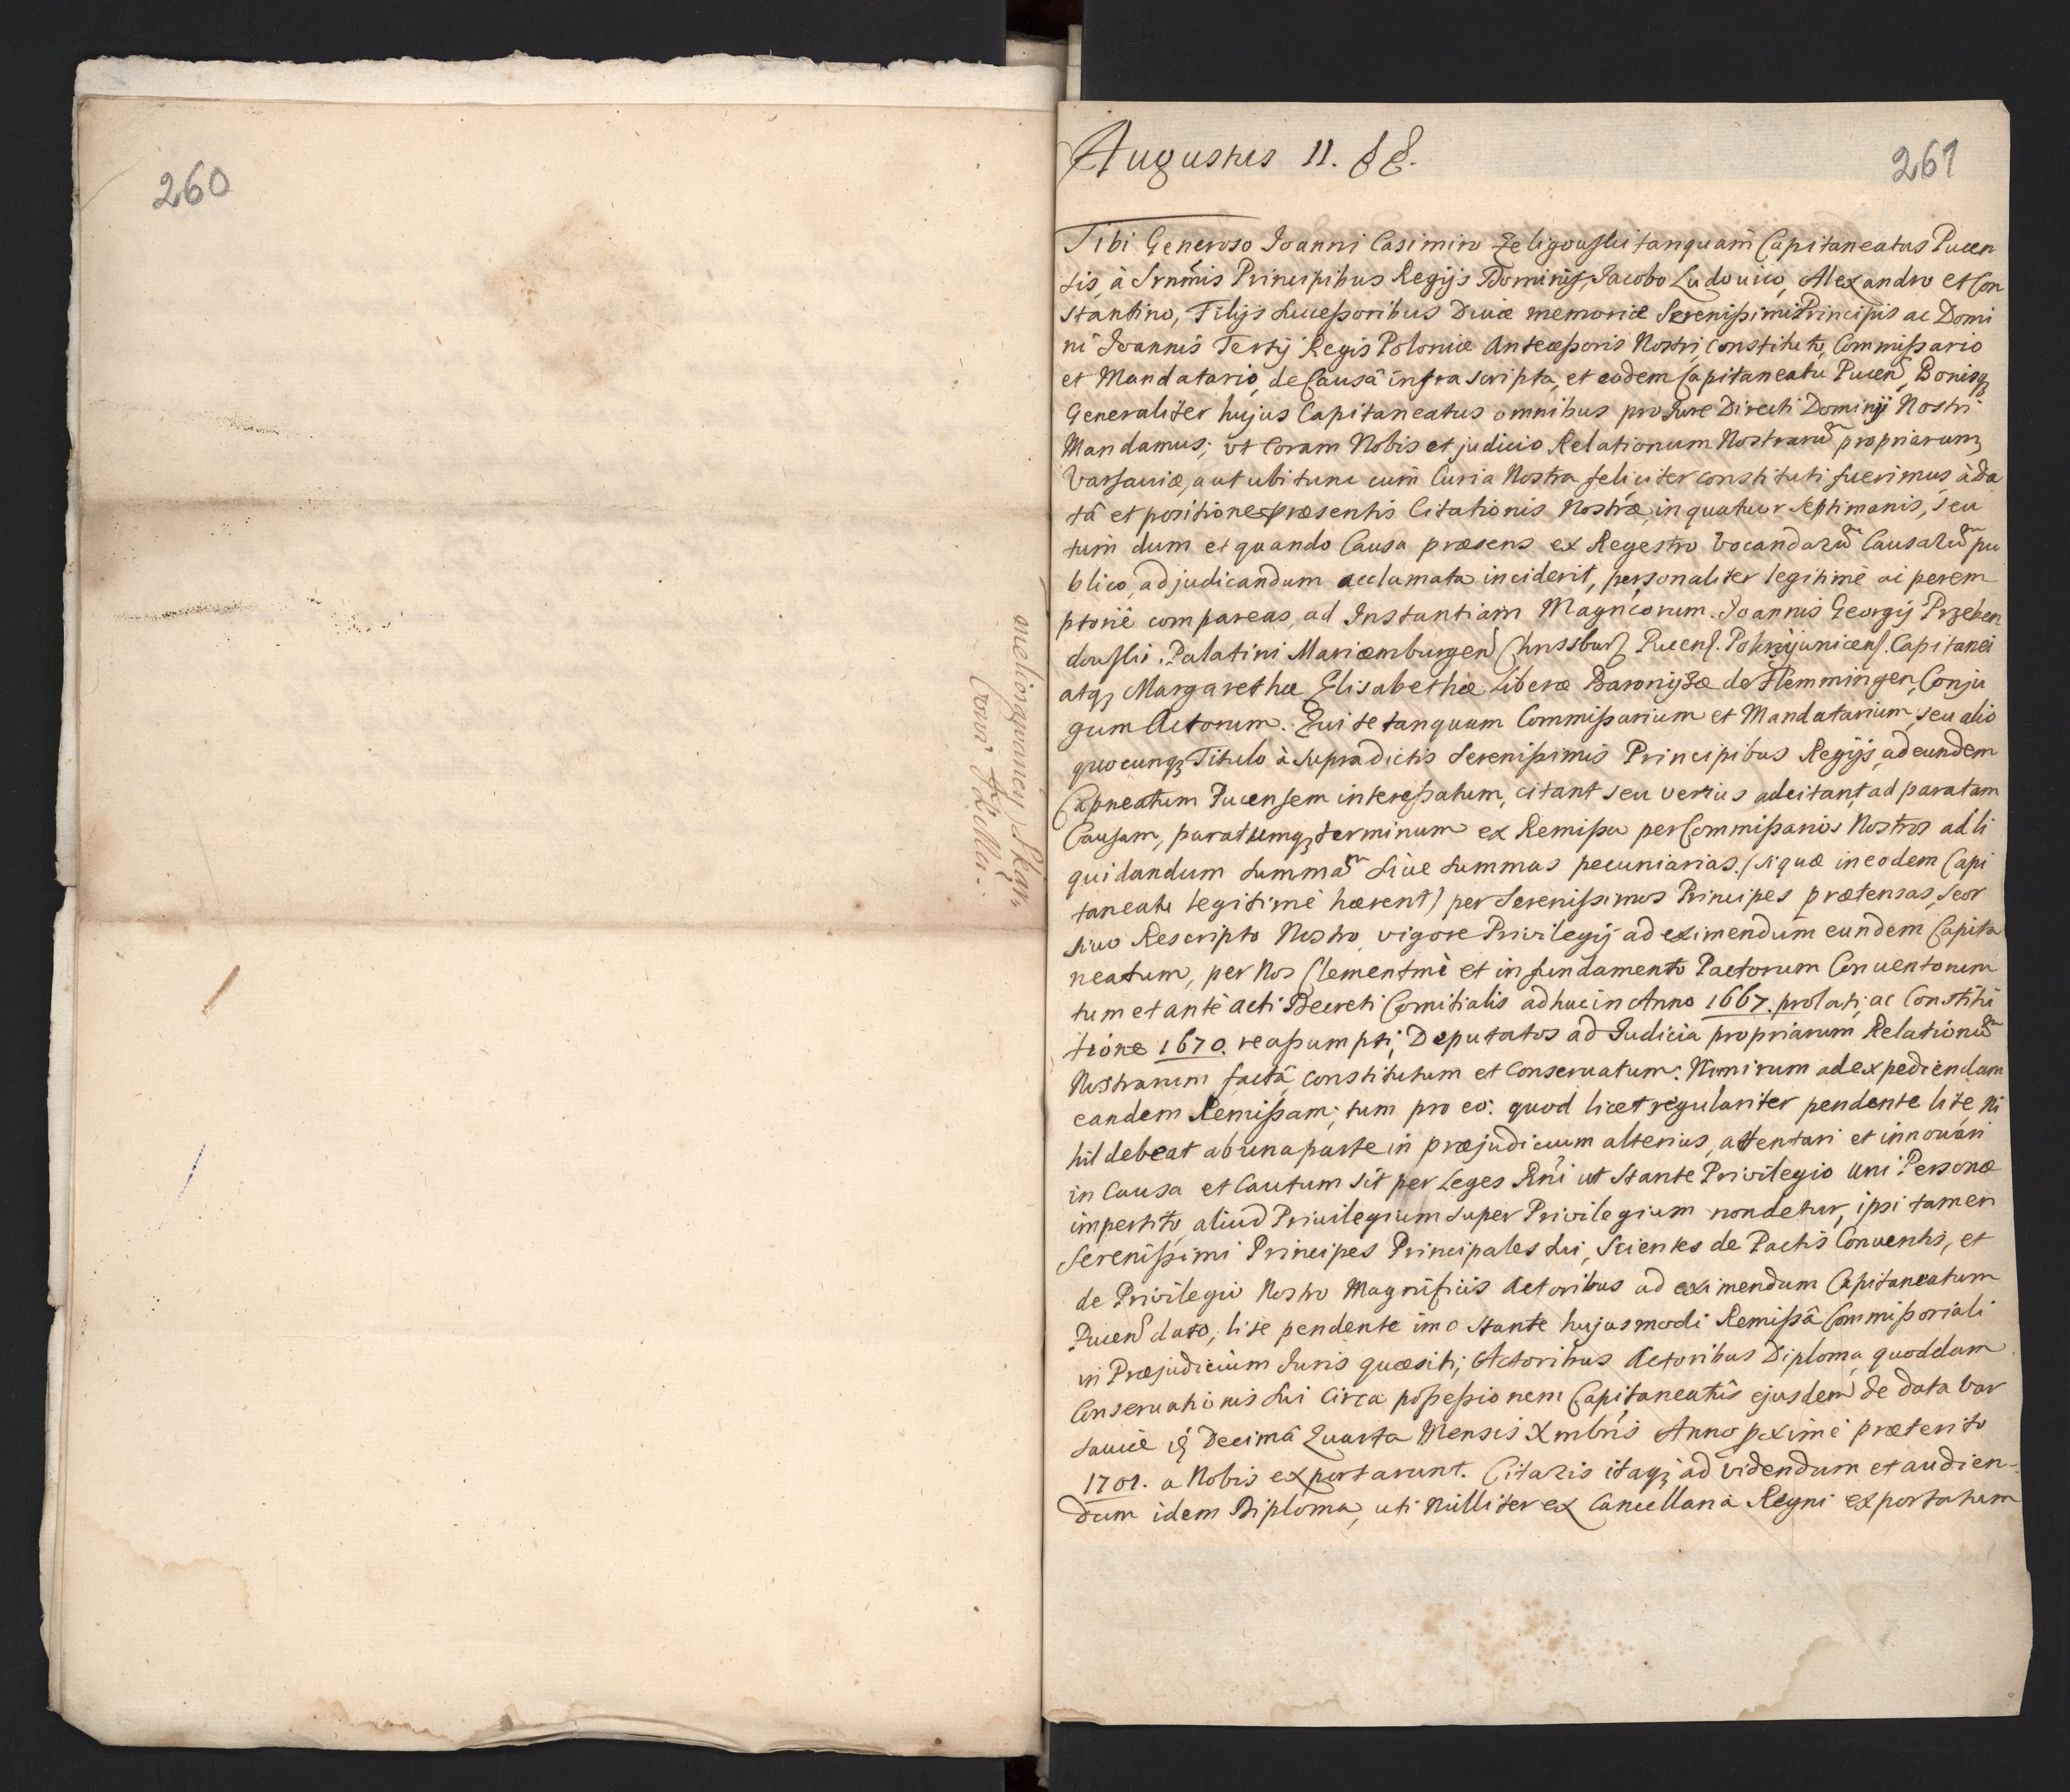 260
Augustus II. &c.
261
Tibi Generoso Joanni Casimiro Zeligowski tanquam Capitaneatus Pucen
sis, à Srnmis Principibus Regijs Dominis, Jacobo Ludouico, Alexandro et Con
stantino, Filijs Sucessoribus Divæ memoriæ Serenissimi Principis ac Domi
ni Joannis Tertij Regis Poloniæ Antecessoris Nostri, constituto, Commissario
et Mandatario, de Causâ infra scripta, et eodem Capitaneatu Pucen, Bonisq
Generaliter hujus Capitaneatus omnibus pro Jure Directi Dominij Nostri
Mandamus; vt Coram Nobis et judicio Relationum Nostraru propriarum
Varsauiæ, aut ubi tunc cum Curia Nostra feliciter constituti fuerimus à da
tâ et positione præsentis Citationis Nostræ, in quatuor septimanis, seu
tum dum et quando Causa præsens ex Regestro vocandaru Causaru pu
blico, adjudicandum acclamata inciderit, personaliter legitimè ac perem
ptoriè compareas, ad Instantiam Magnicorum Joannis Georgij Przeben
dowski Palatini Mariæmburgen Pucens. Capitanei
atq Margarethæ Elisabethæ Liberæ Baronissæ de Flemmingen, Conju
gum Actorum. Qui te tanquam Commissarium et Mandatarium, seu alio
quocunq Titulo à supradictis Serenissimis Principibus Regijs, ad eundem
Capneatum Pucensem interessatum, citant seu verius adcitant, ad paratam
Causam, paratumq terminum ex Remissa per Commissarios Nostros ad li
quidandum summa siue summas pecuniarias (si quæ in eodem Capi
taneatu legitimè hærent) per Serenissimos Principes prætensas, seor
siuo Rescripto Nostro, vigore Privilegij ad eximendum eundem Capita
neatum, per Nos Clementmè et in fundamento Pactorum Conuentorum
tum et ante acti Decreti Comitialis adhuc in Anno 1667. prolati, ac Constitu
tione 1670. reassumpti, Deputatos ad Judicia propriarum Relationu
Nostrarum factâ constitutum et Conseruatum: Nimirum ad expediendam
eandem Remissam; tum pro eo: quod licet regulariter pendente lite, ni
hil debeat ab una parte in præjudicium alterius, attentari et innouari
in Causa et Cautum sit per Leges Rni ut stante Privilegio uni Personæ
impertito, aliud Priuilegium super Privilegium non detur, ipsi tamen
Serenissimi Principes Principales sui, Scientes de Pactis Conuentis, et
de Privilegio Nostro Magnificis Actoribus ad eximendum Capitaneatum
Pucen dato, lite pendente imo stante hujusmodi Remissâ Commissoriali
in Præjudicium Juris quæsiti, Actoribus Actoribus Diploma quoddam
Conseruationis sui Circa possessionem Capitaneatûs ejusdem de data Var
sauiæ Decimâ Quarta Mensis Xmbris Anno pximè præterito
1701. a Nobis exportarunt. Citaris itaq ad videndum et audien-
dum idem Diploma, uti Nulliter ex Cancellaria Regni exportatum